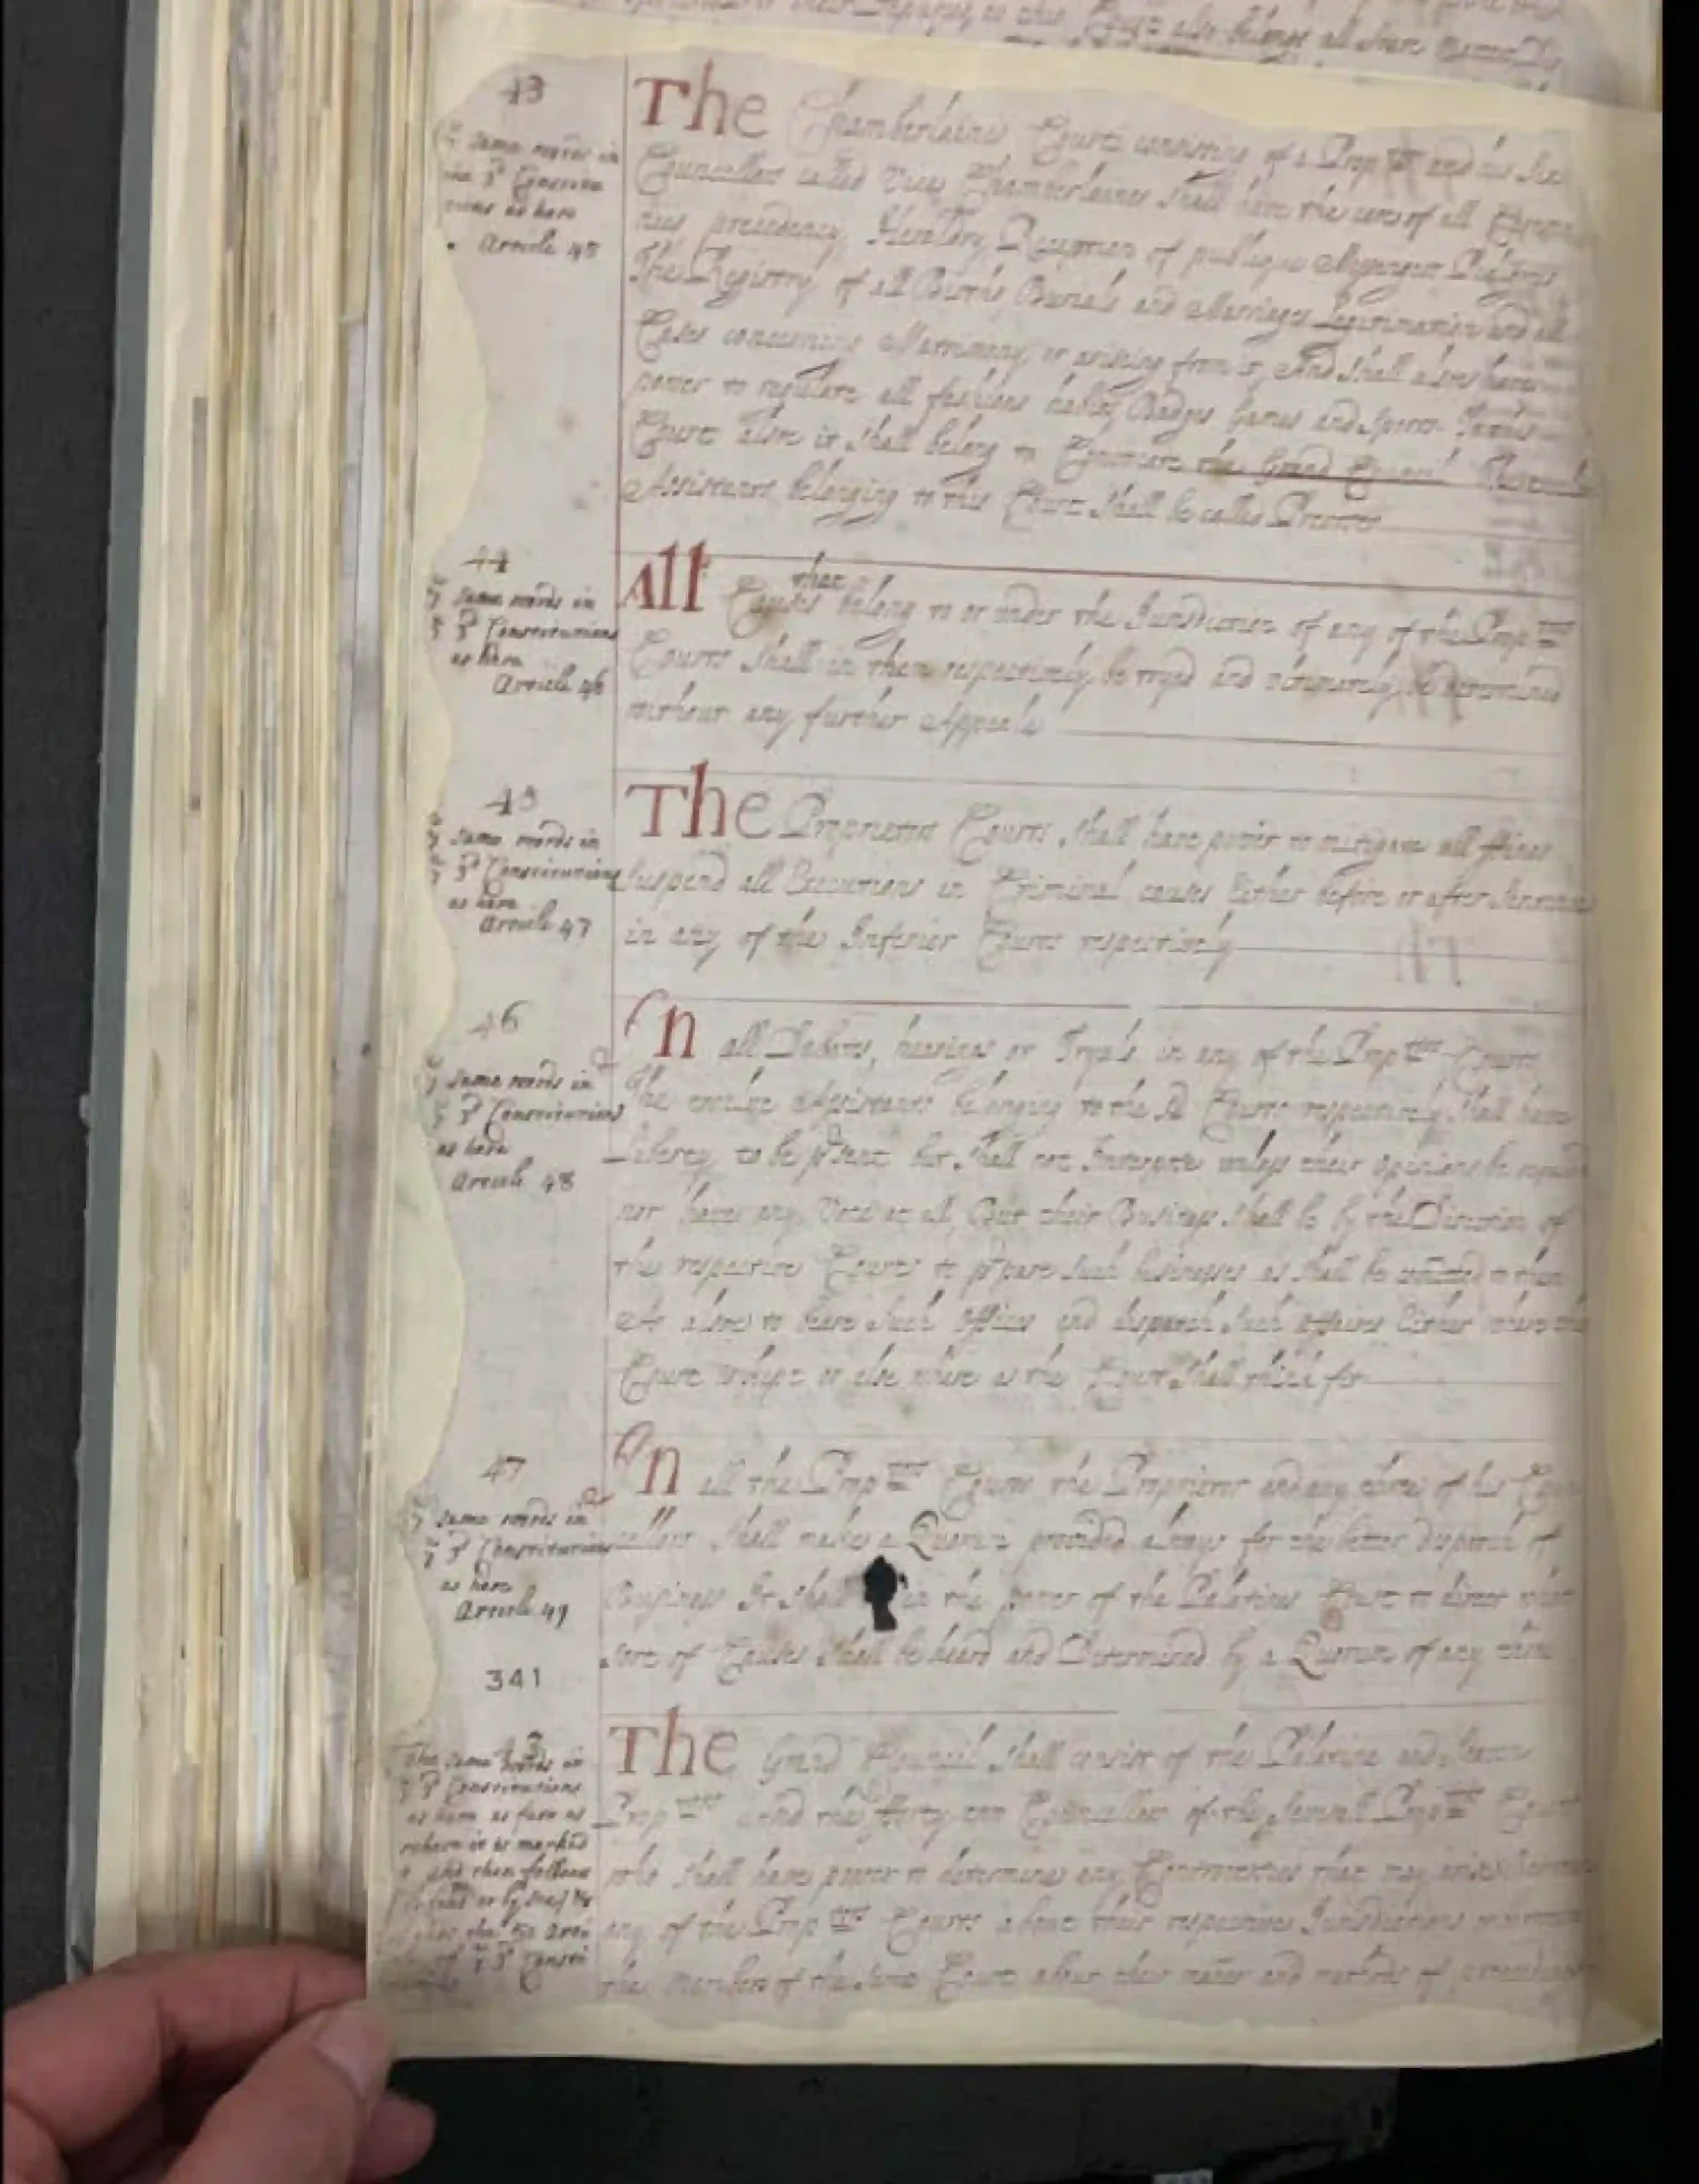 43
same words in
the 3d Constitu
tions as here
Article 45
The Chamberlaines Court consisting of a Propter and his Six
Councellers called Vice Chamberlaines shall have the care of all Ceremo
nies precedency, Heraldry, Reception of publique Messengers Pedigrees
The Registry of all Births Burials and Marriages Legitimation and all
Cases concerning Matrimony or arising from it, And shall alsoe have
power to regulate all fashions habits, Badges Games and Sports. To this
Court alsoe it shall belong to Convocate the Grand Councill The twelve
Assistants belonging to this Court shall be called Provosts
44
Same words in
3d Constitutions
as here
Article 46
All Causes that belong to or under the Jurisdiction of any of the Proptors
Courts shall in them respectively be tryed and ultimately be determined
without any further Appeale
45
Same words in
3d Constitutions
as here
Article 47
The Proprietors Courts shall have power to mitigate all ffines
suspend all Executions in Criminal causes Either before or after Sentence
in any of the Inferior Courts respectively
46
Same words in
3d Constitutions
as here
Article 48
In all Debates, hearings or Tryals in any of the Proptors Courts
The twelve Assistants belonging to the sd Courts respectively shall have
Liberty to be psent but shall not Interpose unless their opinions be required
nor have any Vote at all, But their Business shall be by the Direction of
the respective Courts to ppare such businesses as shall be comitted to them
As alsoe to beare such Offices and dispatch such affaires Either where the
Court is kept or else where as the Court shall think fit
47
Same words in
3d Constitutions
as here
Article 49
In all the Proptors Courts the Proprietor and any three of his Coun
cellers shall make a Quorum provided always for the better dispatch of
Business It shall in the power of the Palatines Court to direct what
sort of Causes shall be heard and Determined by a Quorum of any three
341
The same words in
3d Constitutions
as here as farr as
where it is marked
and then follows
the 50 Arti
3d Consti
The Grand Councill shall consist of the Palatine and seaven
Proptors And the fforty two Councellers of the severall Proptors Courts
who shall have power to determine any Controversies that may arise between
any of the Proptors Courts about their respective Jurisdictions or between
the members of the same Court about their maner and methods of proceedings